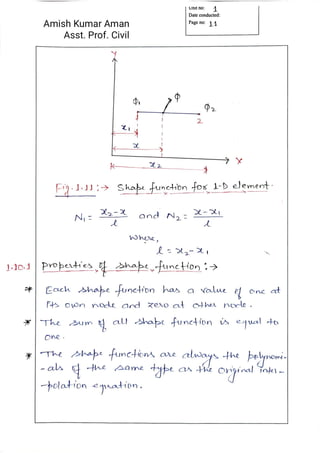 Unit no: 1
Date conducted:
Page no: 11
Amish Kumar Aman
Asst. Prof. Civil
Y
Φ₁ Φ Φ₂
2
x₁
x
x₂ X
Fig-1.11 :→ Shape function for 1-D element.
N₁ = x₂-x / l and N₂ = x-x₁ / l
Where,
l = x₂-x₁
1.10.1 Properties of shape function :→
* Each shape function has a value of one at
its own node and zero at other node.
* The sum of all shape function is equal to
one.
* The shape functions are always the polynomi-
-als of the same type as the original inter-
-polation equation.